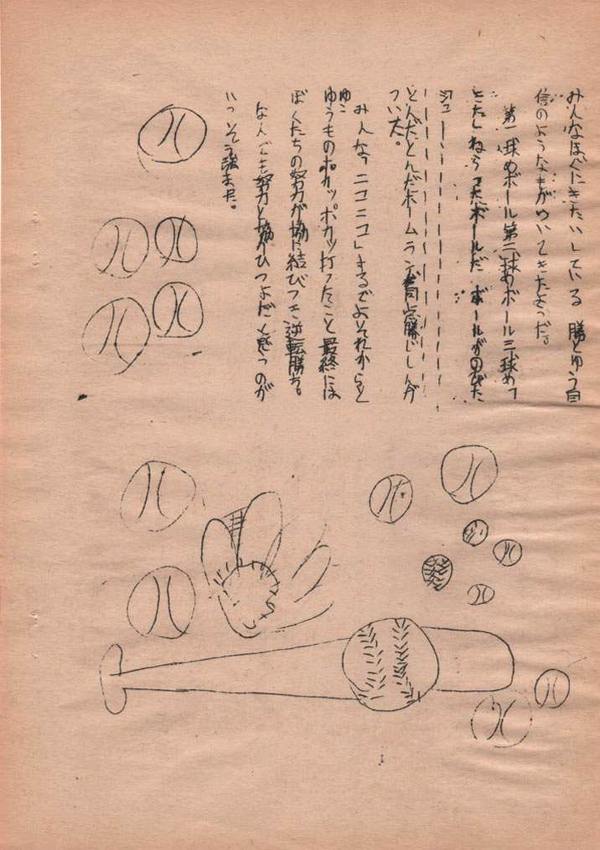 みんなほくにきたいしている 勝とゆう自
信のようなもがわいてきたようだ。
第一球めボール第二球めボール三球めつ
きたしねらったボールだ ボールがのびた
ジュー
とんだとんだホームラン
ついた。
みんな「ニコニコ」するでよそれからと
ゆうものポカッポカッ打ったこと最終には
ぼくたちの努力が協力に結びつき逆転勝ち。
なんでも努力と協力がひつよだと感つのが
いっそう強また。